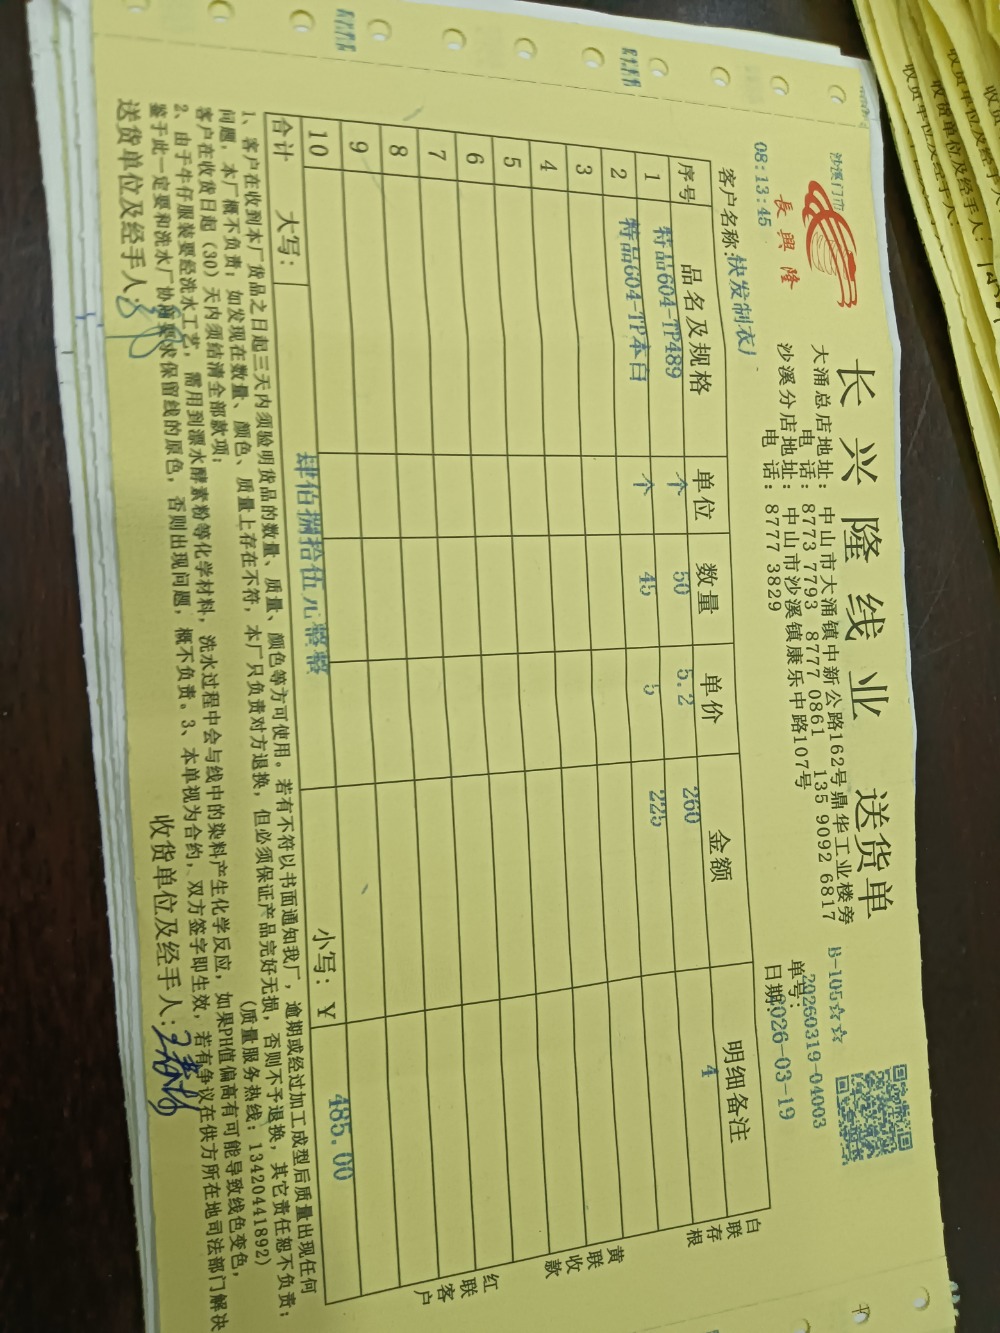 沙溪门市
長興隆
08:13:45
长兴隆线业 送货单
大涌总店地址：中山市大涌镇中新公路162号鼎华工业楼旁
电 话：8773 7793 8777 0861 135 9092 6817
沙溪分店地址：中山市沙溪镇康乐中路107号
电 话：8777 3829
B-105☆☆
单号：20260319-04003
日期：2026-03-19
客户名称：快发制衣厂
序号 品名及规格 单位 数量 单价 金额 明细备注
1 特品604-TP489 个 50 5.2 260 4
2 特品604-TP本白 个 45 5 225
3
4
5
6
7
8
9
10
合计 大写： 肆佰捌拾伍元整整 小写：￥ 485.00
白联存根
黄联收款
红联客户
1、客户在收到本厂货品之日起三天内须验明货品的数量、质量、颜色等方可使用。若有不符以书面通知我厂，逾期或经过加工成型后质量出现任何
问题，本厂概不负责；如发现在数量、颜色、质量上存在不符，本厂只负责对方退换，但必须保证产品完好无损，否则不予退换，其它责任恕不负责；
客户在收货日起（30）天内须结清全部款项；
（质量服务热线：13420441892）
2、由于牛仔服装要经洗水工艺，需用到漂水酵素粉等化学材料，洗水过程中会与线中的染料产生化学反应，如果PH值偏高有可能导致线色变色，
鉴于此一定要和洗水厂协商要求保留线的原色，否则出现问题，概不负责。3、本单视为合约，双方签字即生效，若有争议在供方所在地司法部门解决
送货单位及经手人：
收货单位及经手人：
收货单位及经手人：
收货单位及经手人：
收货单位及经手人：